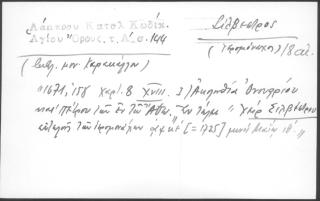 Λάμπρου Κατάλ. Κώδίκ.
Ἁγίου Ὄρους, τ. Α΄ σ. 144
Σίλβεστρος
(ἱερομόναχος) 18 αἰ.
(βιβλ. μον. Καρακάλλου)
"1671, 158 χαρτ. 8 XVIII. 3) Ἀκολουθία Ὀνουφρίου
καὶ Πέτρου τῶν ἐν τῷ Ἄθῳ. Ἐν τέλει "Χεὶρ Σιλβέστρου
τῶν ἱερομονάχων αψκέ [= 1725] μηνὶ